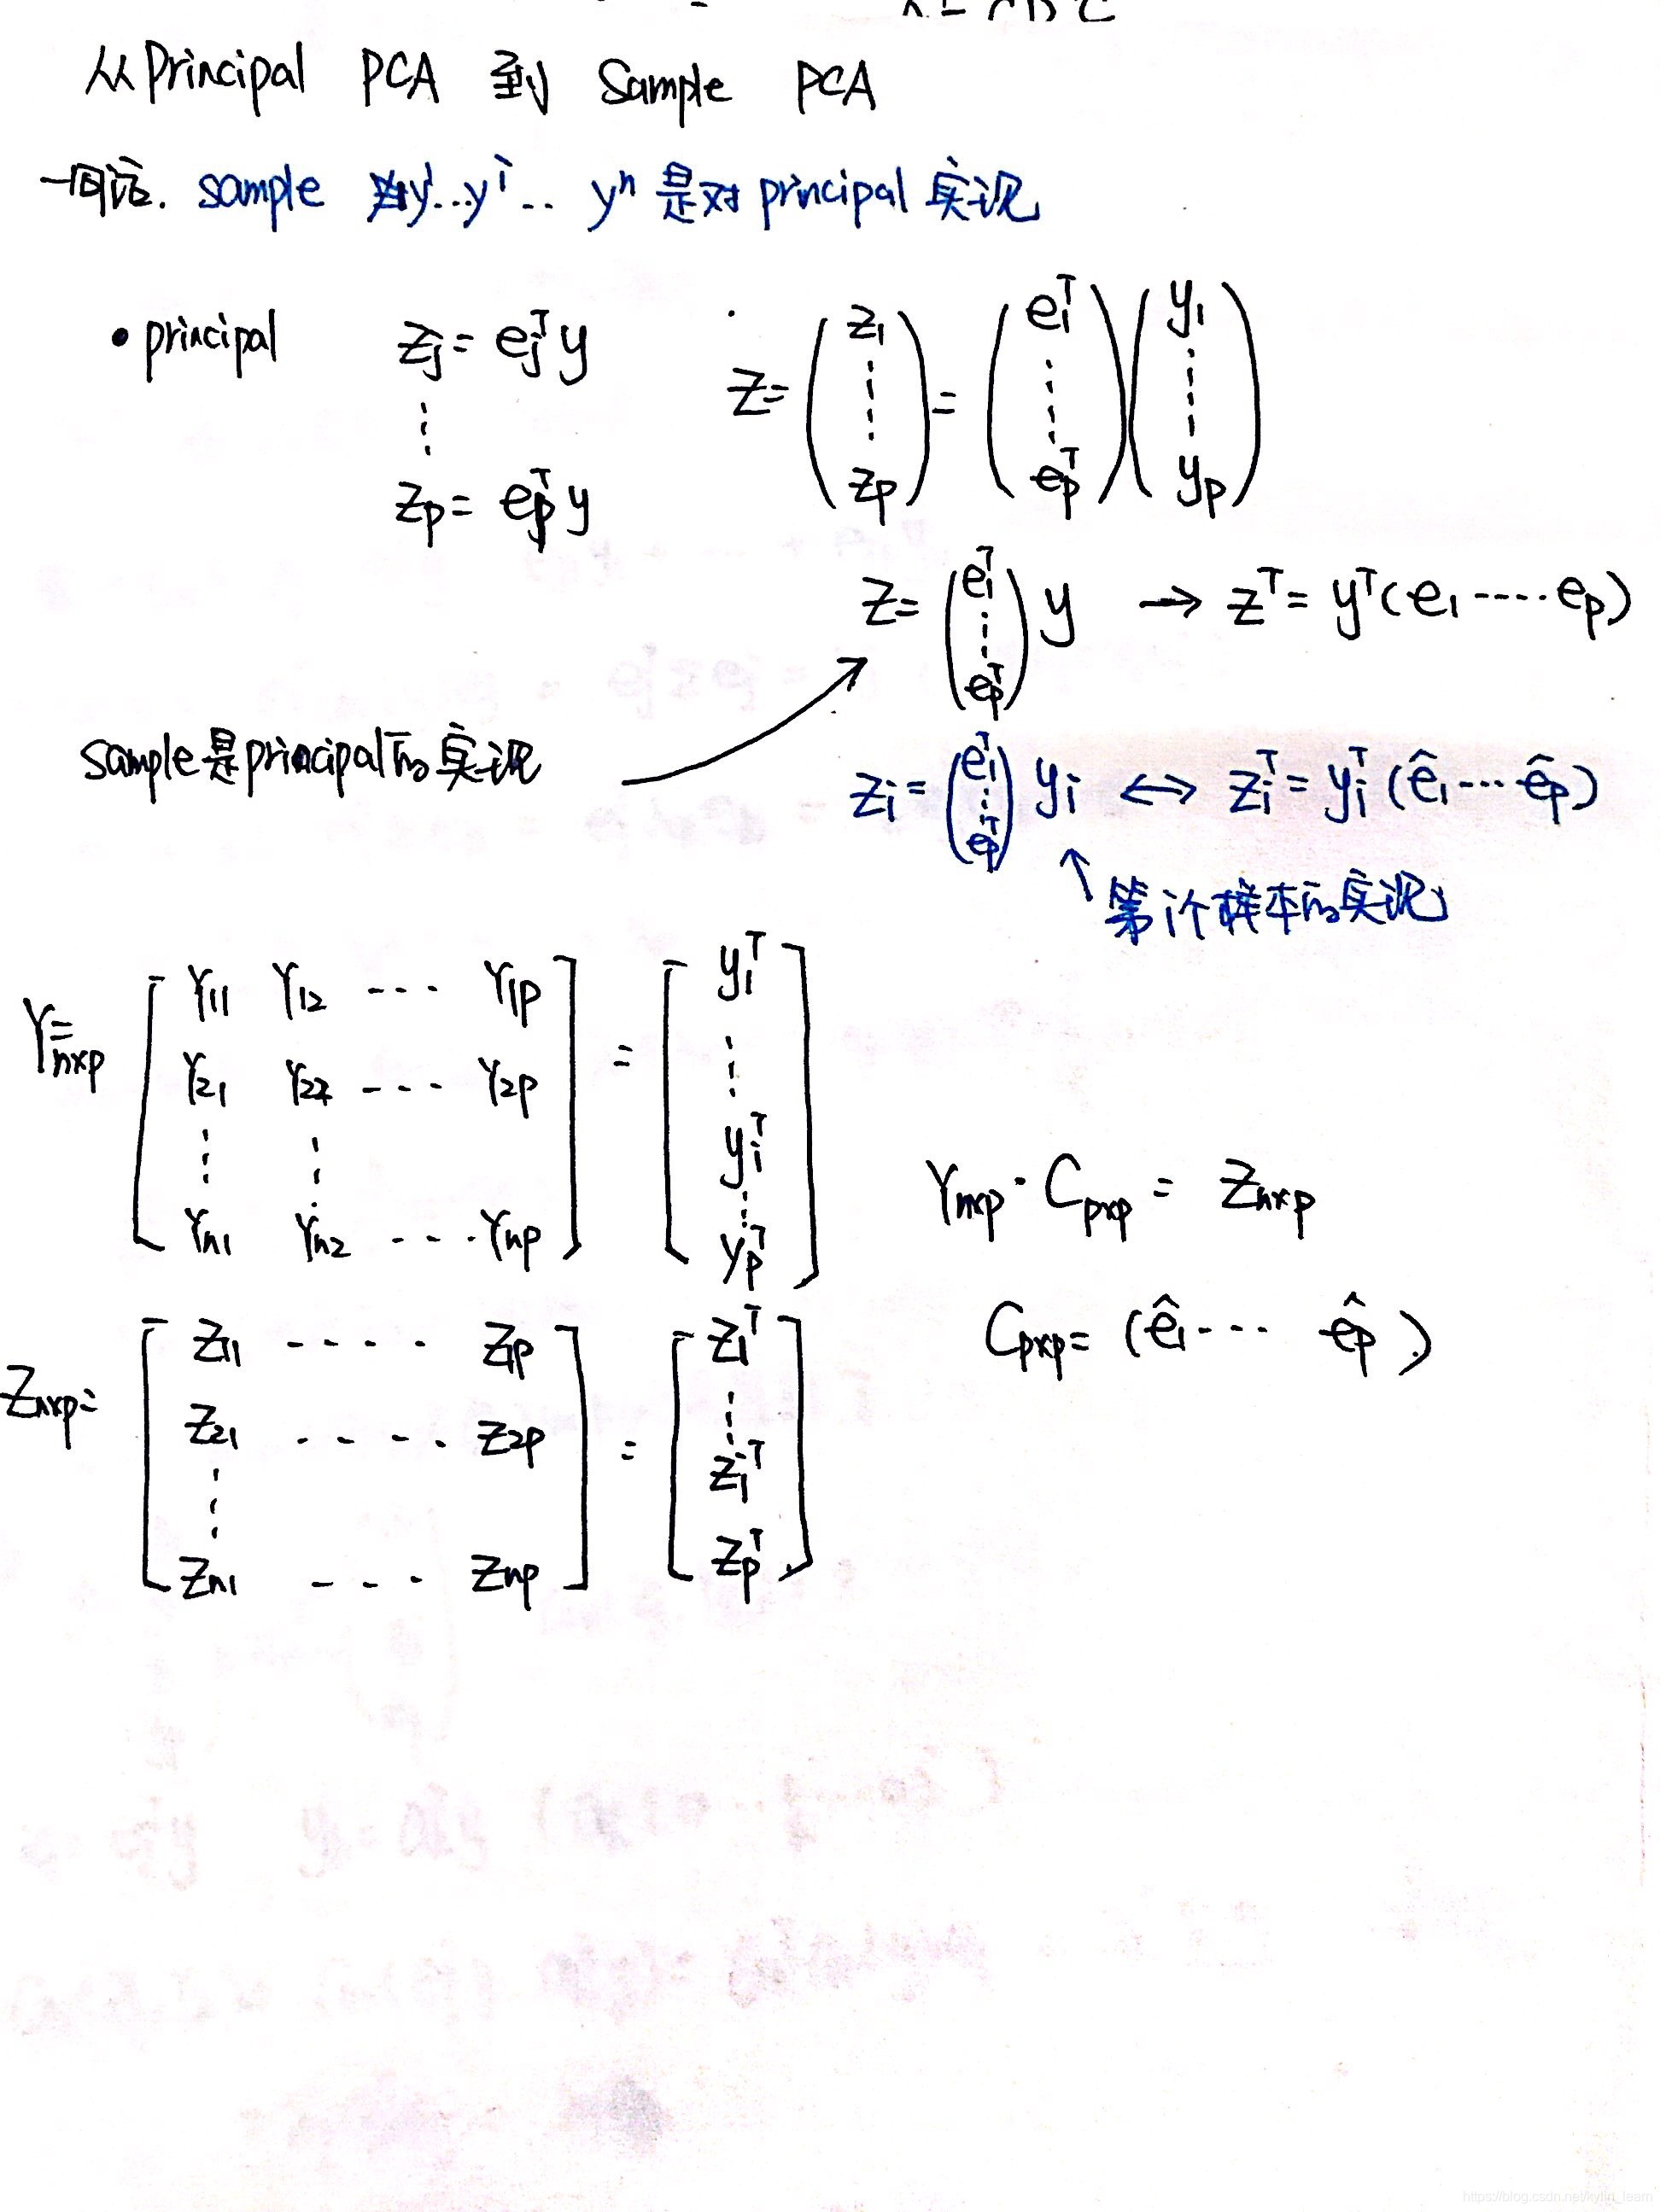 从Principal PCA 到 Sample PCA
一句话. sample y¹...yⁱ.. yⁿ 是对 principal 实现
• principal zⱼ = eⱼᵀ y
⋮
zₚ = eₚᵀ y
z = (z₁ ⋮ zₚ) = (e₁ᵀ ⋮ eₚᵀ)(y₁ ⋮ yₚ)
z = (e₁ᵀ ⋮ eₚᵀ) y → zᵀ = yᵀ(e₁ ---- eₚ)
sample是principal的实现
zᵢ = (e₁ᵀ ⋮ eₚᵀ) yᵢ ↔ zᵢᵀ = yᵢᵀ (ê₁ --- êₚ)
↑ 第i个样本的实现
Y = n×p [Y₁₁ Y₁₂ --- Y₁ₚ
Y₂₁ Y₂₂ --- Y₂ₚ
⋮ ⋮
Yₙ₁ Yₙ₂ --- Yₙₚ] = [y₁ᵀ ⋮ yᵢᵀ ⋮ yₚᵀ]
Yn×p · Cp×p = Zn×p
Cp×p = (ê₁ --- êₚ)
Zn×p = [Z₁₁ ---- Z₁ₚ
Z₂₁ ---- Z₂ₚ
⋮
Zₙ₁ --- Zₙₚ] = [z₁ᵀ ⋮ zᵢᵀ zₚᵀ]
https://blog.csdn.net/kylin_learn